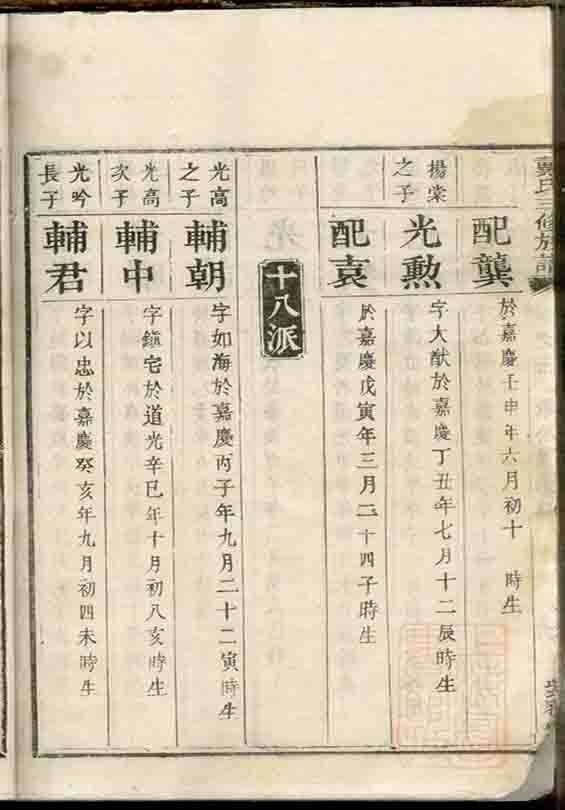 戴氏三修族譜
配龔
於嘉慶壬申年六月初十 時生
揚棠之子
光勲
字大猷於嘉慶丁丑年七月十二辰時生
配袁
於嘉慶戊寅年三月二十四子時生
十八派
光高之子
輔朝
字如海於嘉慶丙子年九月二十二寅時生
光高次子
輔中
字鎮宅於道光辛巳年十月初八亥時生
光吟長子
輔君
字以忠於嘉慶癸亥年九月初四未時生